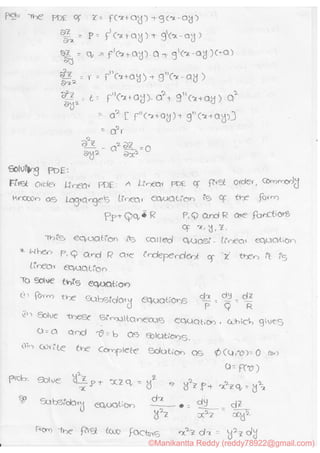 Pbm: The PDE of z = f(x+ay) + g(x-ay)
∂z/∂x = p = f'(x+ay) + g'(x-ay)
∂z/∂y = q = f'(x+ay).a + g'(x-ay)(-a)
∂²z/∂x² = r = f''(x+ay) + g''(x-ay)
∂²z/∂y² = t = f''(x+ay).a² + g''(x-ay).a²
= a² [ f''(x+ay) + g''(x+ay)]
= a²r
∂²z/∂y² - a² ∂²z/∂x² = 0
Solving PDE:
First order Linear PDE: A Linear PDE of first order, commonly
known as Lagrange's linear equation is of the form
Pp+Qq = R P,Q and R are functions
of x,y,z.
This equation is called quasi-linear equation
* When P, Q and R are independent of z then it is
linear equation
To solve this equation
(i) form the subsidary equations dx/P = dy/Q = dz/R
(ii) Solve these simultaneous equation, which gives
u=a and v=b as solutions.
(iii) write the complete solution as φ(u,v)=0 or
u=f(v)
prob: Solve y²z/x p + xzq = y² ⇒ y²z p + x²zq = y²x
Subsidary equation dx/y²z = dy/x²z = dz/xy²
From the first two factors x²z dx = y²z dy
©Manikantta Reddy (reddy78922@gmail.com)